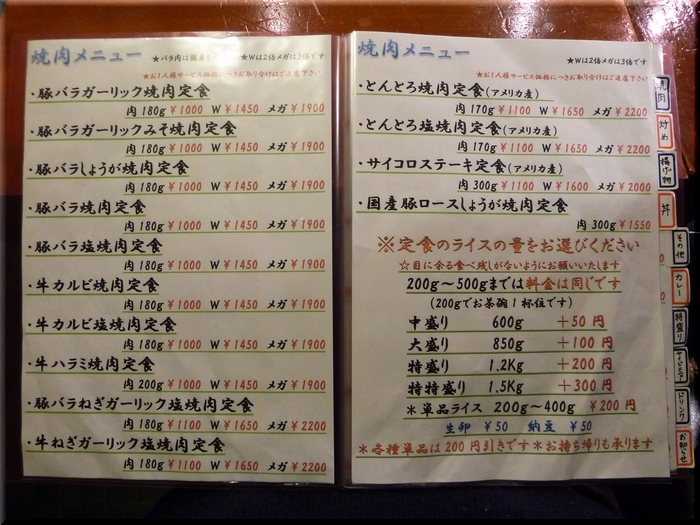 焼肉メニュー
★バラ肉は国産
★Wは2倍メガは3倍です
★お1人様サービス価格につきお取り分けはご遠慮下さい
・豚バラガーリック焼肉定食
肉 180g ¥1000 W ¥1450 メガ ¥1900
・豚バラガーリックみそ焼肉定食
肉 180g ¥1000 W ¥1450 メガ ¥1900
・豚バラしょうが焼肉定食
肉 180g ¥1000 W ¥1450 メガ ¥1900
・豚バラ焼肉定食
肉 180g ¥1000 W ¥1450 メガ ¥1900
・豚バラ塩焼肉定食
肉 180g ¥1000 W ¥1450 メガ ¥1900
・牛カルビ焼肉定食
肉 180g ¥1000 W ¥1450 メガ ¥1900
・牛カルビ塩焼肉定食
肉 180g ¥1000 W ¥1450 メガ ¥1900
・牛ハラミ焼肉定食
肉 200g ¥1000 W ¥1450 メガ ¥1900
・豚バラねぎガーリック塩焼肉定食
肉 180g ¥1100 W ¥1650 メガ ¥2200
・牛ねぎガーリック塩焼肉定食
肉 180g ¥1100 W ¥1650 メガ ¥2200
焼肉メニュー
★Wは2倍メガは3倍です
★お1人様サービス価格につきお取り分けはご遠慮下さい
・とんとろ焼肉定食(アメリカ産)
肉 170g ¥1100 W ¥1650 メガ ¥2200
・とんとろ塩焼肉定食(アメリカ産)
肉 170g ¥1100 W ¥1650 メガ ¥2200
・サイコロステーキ定食(アメリカ産)
肉 300g ¥1100 W ¥1600 メガ ¥2000
・国産豚ロースしょうが焼肉定食
肉 300g ¥1550
※定食のライスの量をお選びください
☆目に余る食べ残しがないようにお願いいたします
200g〜500gまでは料金は同じです
(200gでお茶碗1杯位です)
中盛り 600g +50円
大盛り 850g +100円
特盛り 1.2Kg +200円
特特盛り 1.5Kg +300円
＊単品ライス 200g〜400g ¥200円
生卵 ¥50 納豆 ¥50
＊各種単品は200円引きです＊お持ち帰りも承ります
焼肉
炒め
揚げ物
丼
その他
カレー
特盛り
サイドメニュー
ドリンク
お知らせ